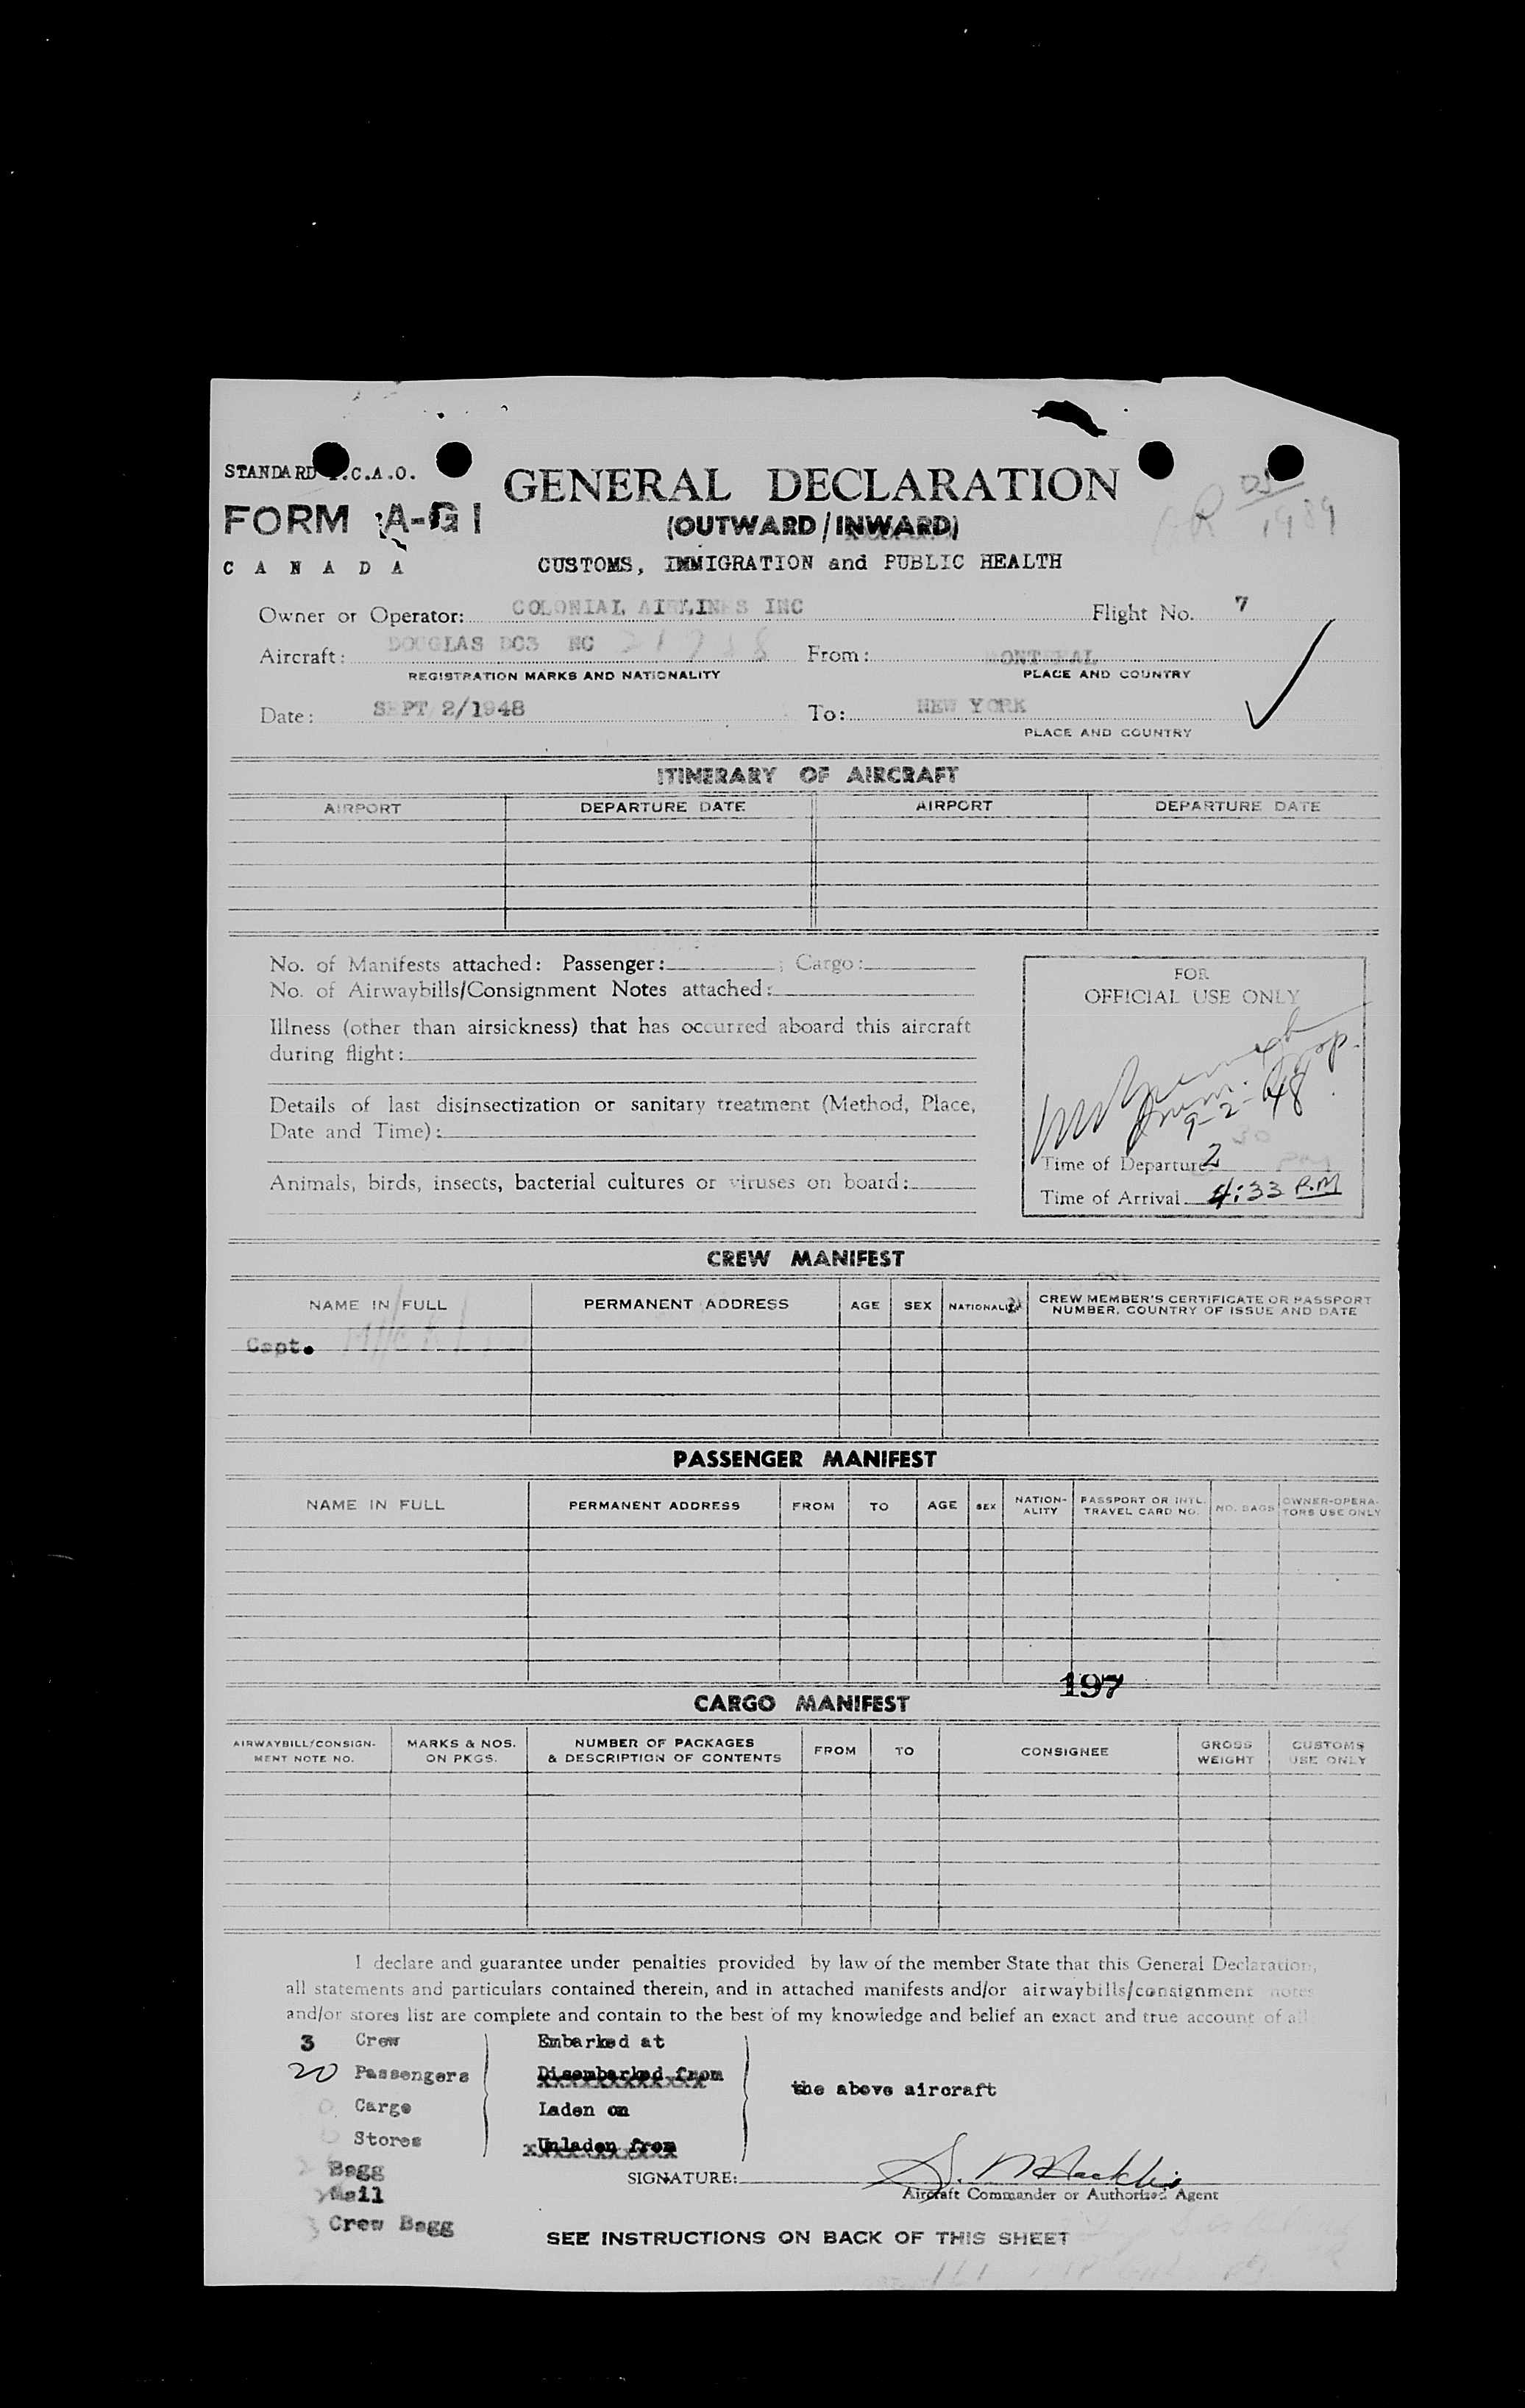 STANDARD I.C.A.O.
GENERAL DECLARATION
FORM A-G1
(OUTWARD/INWARD)
1989
CANADA
CUSTOMS, IMMIGRATION and PUBLIC HEALTH
Owner or Operator: COLONIAL AIRLINES INC Flight No. 7
Aircraft: DOUGLAS DC3 NC 21 From: MONTREAL
REGISTRATION MARKS AND NATIONALITY PLACE AND COUNTRY
Date: SEPT 2/1948 To: NEW YORK
PLACE AND COUNTRY
ITINERARY OF AIRCRAFT
AIRPORT DEPARTURE DATE AIRPORT DEPARTURE DATE
No. of Manifests attached: Passenger: ; Cargo:
No. of Airwaybills/Consignment Notes attached:
Illness (other than airsickness) that has occurred aboard this aircraft
during flight:
Details of last disinsectization or sanitary treatment (Method, Place,
Date and Time):
Animals, birds, insects, bacterial cultures or viruses on board:
FOR
OFFICIAL USE ONLY
9-2-48
Time of Departure 2 30 PM
Time of Arrival 4:33 P.M
CREW MANIFEST
NAME IN FULL PERMANENT ADDRESS AGE SEX NATIONALITY CREW MEMBER'S CERTIFICATE OR PASSPORT
NUMBER, COUNTRY OF ISSUE AND DATE
Capt.
PASSENGER MANIFEST
NAME IN FULL PERMANENT ADDRESS FROM TO AGE SEX NATION-
ALITY PASSPORT OR INTL.
TRAVEL CARD NO. NO. BAGS OWNER-OPERA-
TORS USE ONLY
197
CARGO MANIFEST
AIRWAYBILL/CONSIGN-
MENT NOTE NO. MARKS & NOS.
ON PKGS. NUMBER OF PACKAGES
& DESCRIPTION OF CONTENTS FROM TO CONSIGNEE GROSS
WEIGHT CUSTOMS
USE ONLY
I declare and guarantee under penalties provided by law of the member State that this General Declaration,
all statements and particulars contained therein, and in attached manifests and/or airwaybills/consignment notes
and/or stores list are complete and contain to the best of my knowledge and belief an exact and true account of all
3 Crew Embarked at
20 Passengers Disembarked from
the above aircraft
Cargo Laden on
Stores Unladen from
Bagg
SIGNATURE:
Mail
Aircraft Commander or Authorized Agent
Crew Bagg
SEE INSTRUCTIONS ON BACK OF THIS SHEET